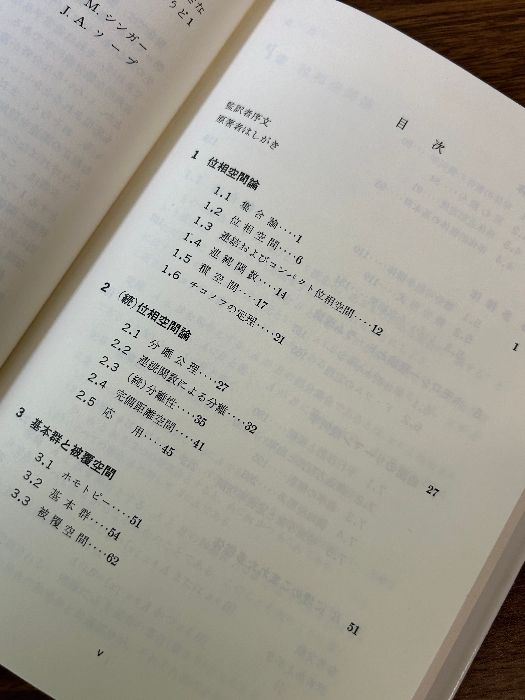 M. シンガー
J. A. ソープ
目次
監訳者序文
原著者はしがき
1 位相空間論 1
1.1 集合論‥‥1
1.2 位相空間‥‥6
1.3 連結およびコンパクト位相空間‥‥12
1.4 連続関数‥‥14
1.5 積空間‥‥17
1.6 チコノフの定理‥‥21
2 (続)位相空間論 27
2.1 分離公理‥‥27
2.2 連続関数による分離‥‥32
2.3 (続)分離性‥‥35
2.4 完備距離空間‥‥41
2.5 応用‥‥45
3 基本群と被覆空間 51
3.1 ホモトピー‥‥51
3.2 基本群‥‥54
3.3 被覆空間‥‥62
v